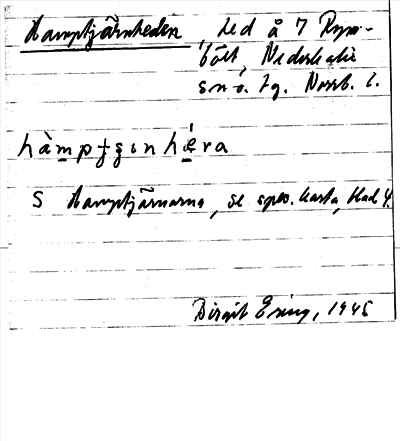 Hamptjärnheden, hed å 7 Rym-
bölt, Nederkalix
sn o. tg. Norrb. l.
hàmpʈʂɪnhé̱ra
S Hamptjärnarna, se spec. karta, blad 4.
Birgit Ering, 1945